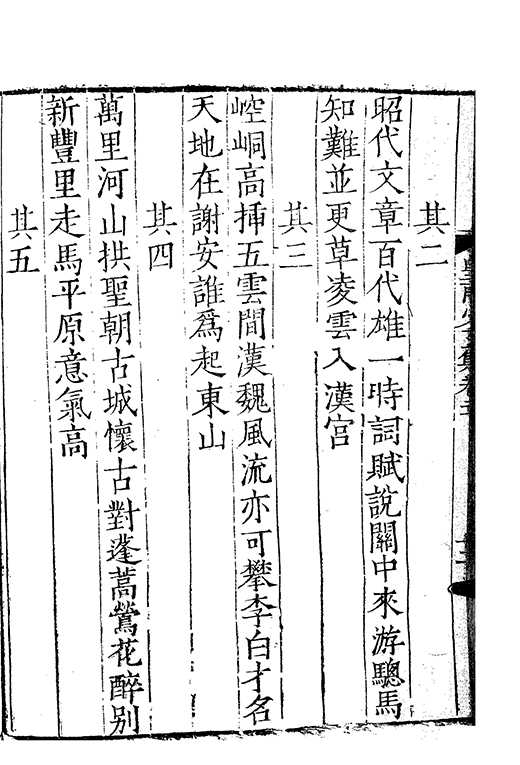 其二
昭代文章百代雄一時詞賦說關中來游驄馬
知難並更草凌雲入漢宮
其三
崆峒高揷五雲間漢魏風流亦可攀李白才名
天地在謝安誰爲起東山
其四
萬里河山拱聖朝古城懷古對蓬蒿鶯花醉别
新豐里走馬平原意氣高
其五